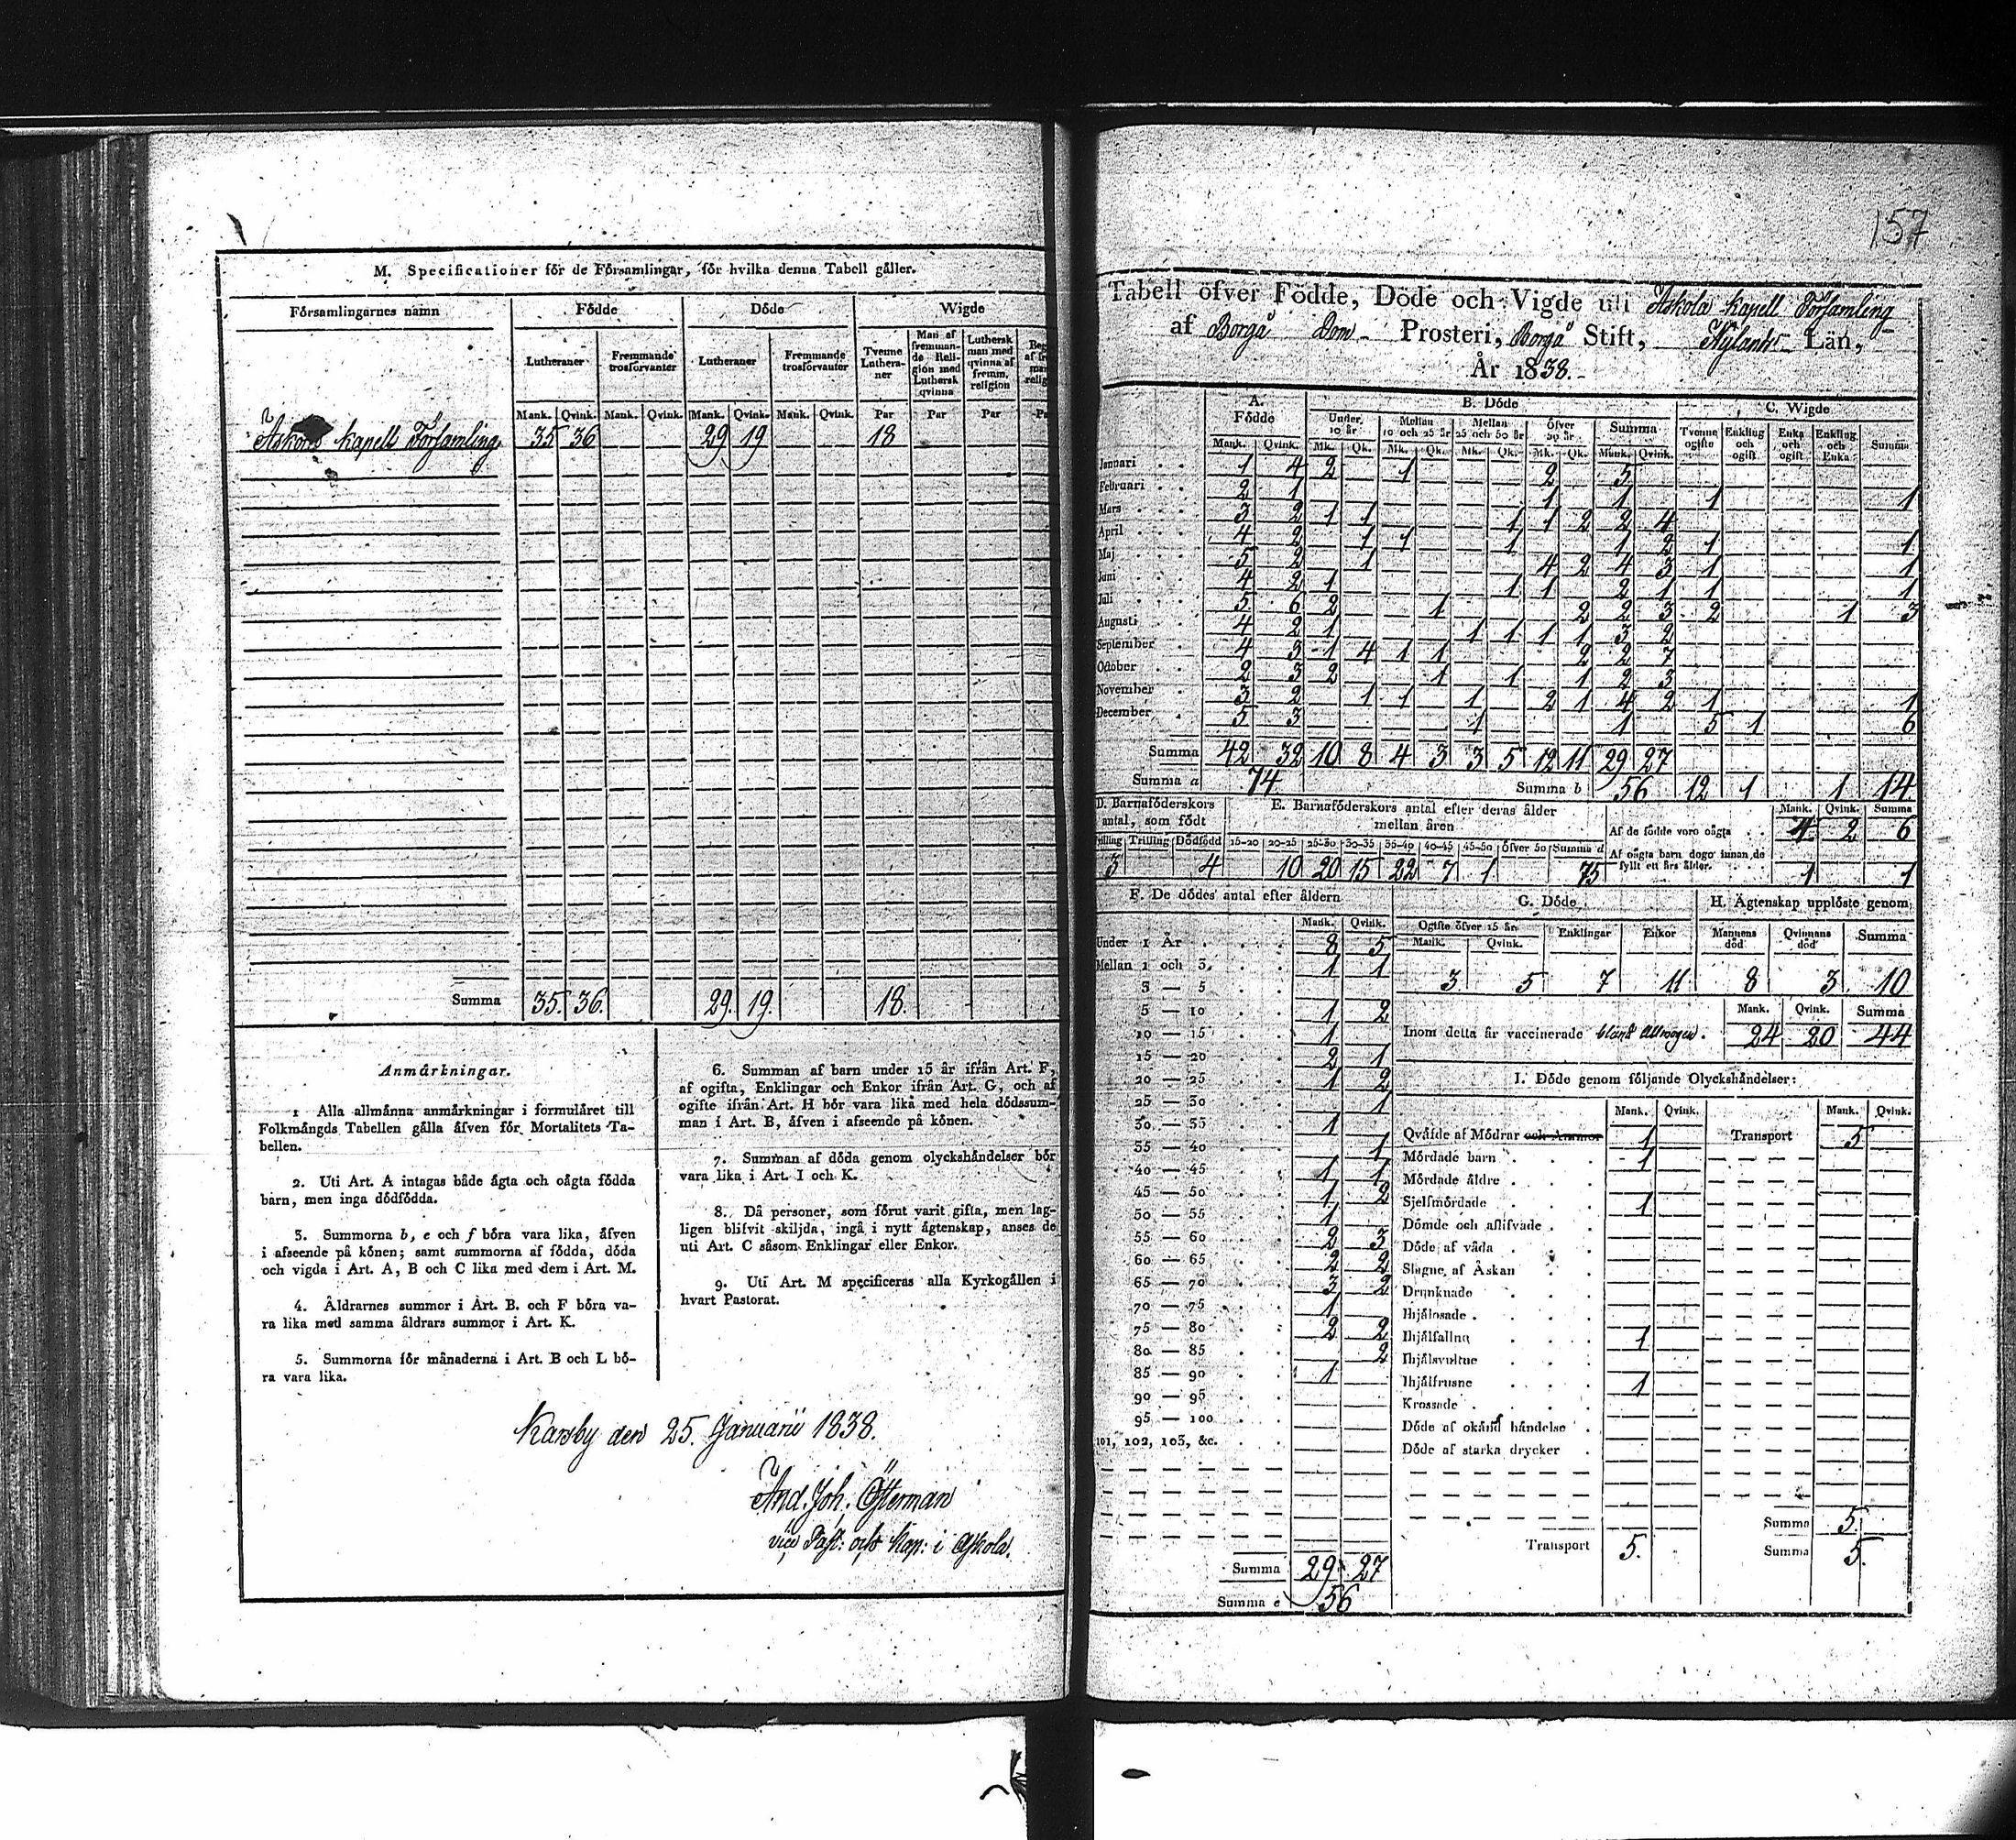 M. Specificationer för de Församlingar, för hvilka denna Tabell gäller.
Församlingarnes namn Födde Döde Wigde
Lutheraner Fremmande trosförvanter Lutheraner Fremmande trosförvanter Tvenne Lutheraner Man af fremmande Religion med Luthersk qvinna Luthersk man med qvinna af fremm. religion
Mank. Qvink. Mank. Qvink. Mank. Qvink. Mank. Qvink. Par Par Par
Askola Kapell Församling 35 36 29 19 18
Summa 35. 36. 29. 19. 18.
Anmärkningar.
1 Alla allmänna anmärkningar i formuläret till
Folkmängds Tabellen gälla äfven för Mortalitets Ta-
bellen.
2. Uti Art. A intagas både ägta och oägta födda
barn, men inga dödfödda.
3. Summorna b, e och f böra vara lika, äfven
i afseende på könen; samt summorna af födda, döda
och vigda i Art. A, B och C lika med dem i Art. M.
4. Åldrarnes summor i Art. B. och F böra va-
ra lika med samma åldrars summor i Art. K.
5. Summorna för månaderna i Art. B och L bö-
ra vara lika.
6. Summan af barn under 15 år ifrån Art. F,
af ogifta, Enklingar och Enkor ifrån Art. G, och af
ogifte ifrån Art. H bör vara lika med hela dödssum-
man i Art. B, äfven i afseende på könen.
7. Summan af döda genom olyckshändelser bör
vara lika i Art. I och K.
8. Då personer, som förut varit gifta, men lag-
ligen blifvit skiljda, ingå i nytt ägtenskap, anses de
uti Art. C såsom Enklingar eller Enkor.
9. Uti Art. M specificeras alla Kyrkogällen i
hvart Pastorat.
den 25. Januarii 1838.
And. Joh. Österman
vice Past: och Kap: i Askola.
157
Tabell öfver Födde, Döde och Vigde uti Askola Kapell Församling
af Borgå Dom- Prosteri, Borgå Stift, Nylands Län,
År 1838.
A. Födde B. Döde C. Wigde
Under 10 år Mellan 10 och 25 år Mellan 25 och 50 år Öfver 50 år Summa Tvenne ogifte Enkling och ogift Enka och ogift Enkling och Enka Summa
Mank. Qvink. Mk. Qk. Mk. Qk. Mk. Qk. Mk. Qk. Mank. Qvink.
Januari 1 4 2 1 2 5
Februari 2 1 1 1 1 1
Mars 3 2 1 1 1 1 2 2 4
April 4 2 1 1 1 1 2 1 1
Maj 5 2 1 4 2 4 3 1 1
Juni 4 2 1 1 1 2 1 1 1
Juli 5 6 2 1 2 2 3 2 1 3
Augusti 4 2 1 1 1 1 1 3 2
September 4 3 1 4 1 1 2 2 7
October 2 3 2 1 1 1 2 3
November 3 2 1 1 1 2 1 4 2 1 1
December 5 3 1 1 5 1 6
Summa 42 32 10 8 4 3 3 5 12 11 29 27
Summa a 74 Summa b 56 12 1 1 14
D. Barnaföderskors antal, som födt
Tvilling Trilling Dödfödd
3 4
E. Barnaföderskors antal efter deras ålder mellan åren
15-20 20-25 25-30 30-35 35-40 40-45 45-50 Öfver 50 Summa d
10 20 15 22 7 1 75
Mank. Qvink. Summa
Af de födde voro oägta 4 2 6
Af oägta barn dogo innan de
fyllt ett års ålder. 1 1
F. De dödes antal efter åldern
Mank. Qvink.
Under 1 År 8 5
Mellan 1 och 3. 1 1
3 — 5
5 — 10 1 2
10 — 15 1
15 — 20 2 1
20 — 25 1 2
25 — 30 1
30 — 35 1
35 — 40 1
40 — 45 1 1
45 — 50 1 2
50 — 55 1
55 — 60 2 3
60 — 65 2 2
65 — 70 3 2
70 — 75 1
75 — 80 2 2
80 — 85 2
85 — 90 1
90 — 95
95 — 100
101, 102, 103, &c.
Summa 29 27
Summa e 56
G. Döde
Ogifte öfver 15 år Enklingar Enkor
Mank. Qvink.
3 5 7 11
H. Ägtenskap upplöste genom
Mannens död Qvinnans död Summa
8 3 10
Mank. Qvink. Summa
Inom detta år vaccinerade bland Allmogen. 24 20 44
I. Döde genom följande Olyckshändelser:
Mank. Qvink. Mank. Qvink.
Qväfde af Mödrar och Ammor 1 Transport 5
Mördade barn 1
Mördade äldre
Sjelfmördade 1
Dömde och aflifvade
Döde af våda
Slagne af Åskan
Drunknade
Ihjälosade
Ihjälfallna 1
Ihjälsvultne
Ihjälfrusne 1
Krossade
Döde af okänd händelse
Döde af starka drycker
Summa 5.
Transport 5. Summa 5.